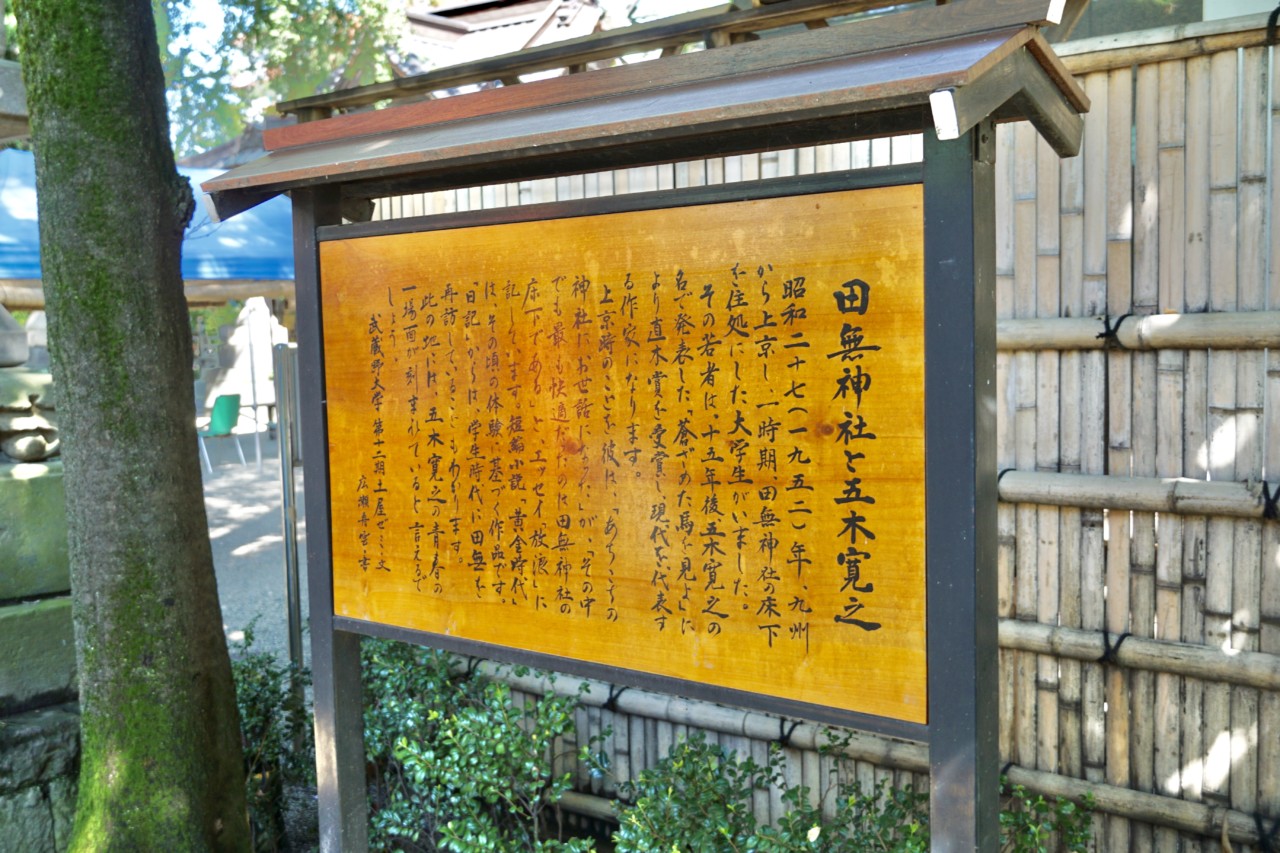 田無神社と五木寛之
昭和二十七(一九五二)年、九州
から上京し、一時期、田無神社の床下
を住処にした大学生がいました。
その若者は、十五年後五木寛之の
名で発表した「蒼ざめた馬を見よ」に
より直木賞を受賞し、現代を代表す
る作家になります。
上京時のことを彼は、「あちこちの
神社にお世話になった」が、「その中
でも最も快適だったのは田無神社の
床下である」と、エッセイ「放浪」に
記しています。短編小説「黄金時代」
は、その頃の体験に基づく作品です。
「日記」からは、学生時代に田無を
再訪していることもわかります。
此の地には、五木寛之の青春の
一場面が刻まれていると言えるで
しょう。
武蔵野大学第十二期土屋ゼミ文
広瀬舟雲書